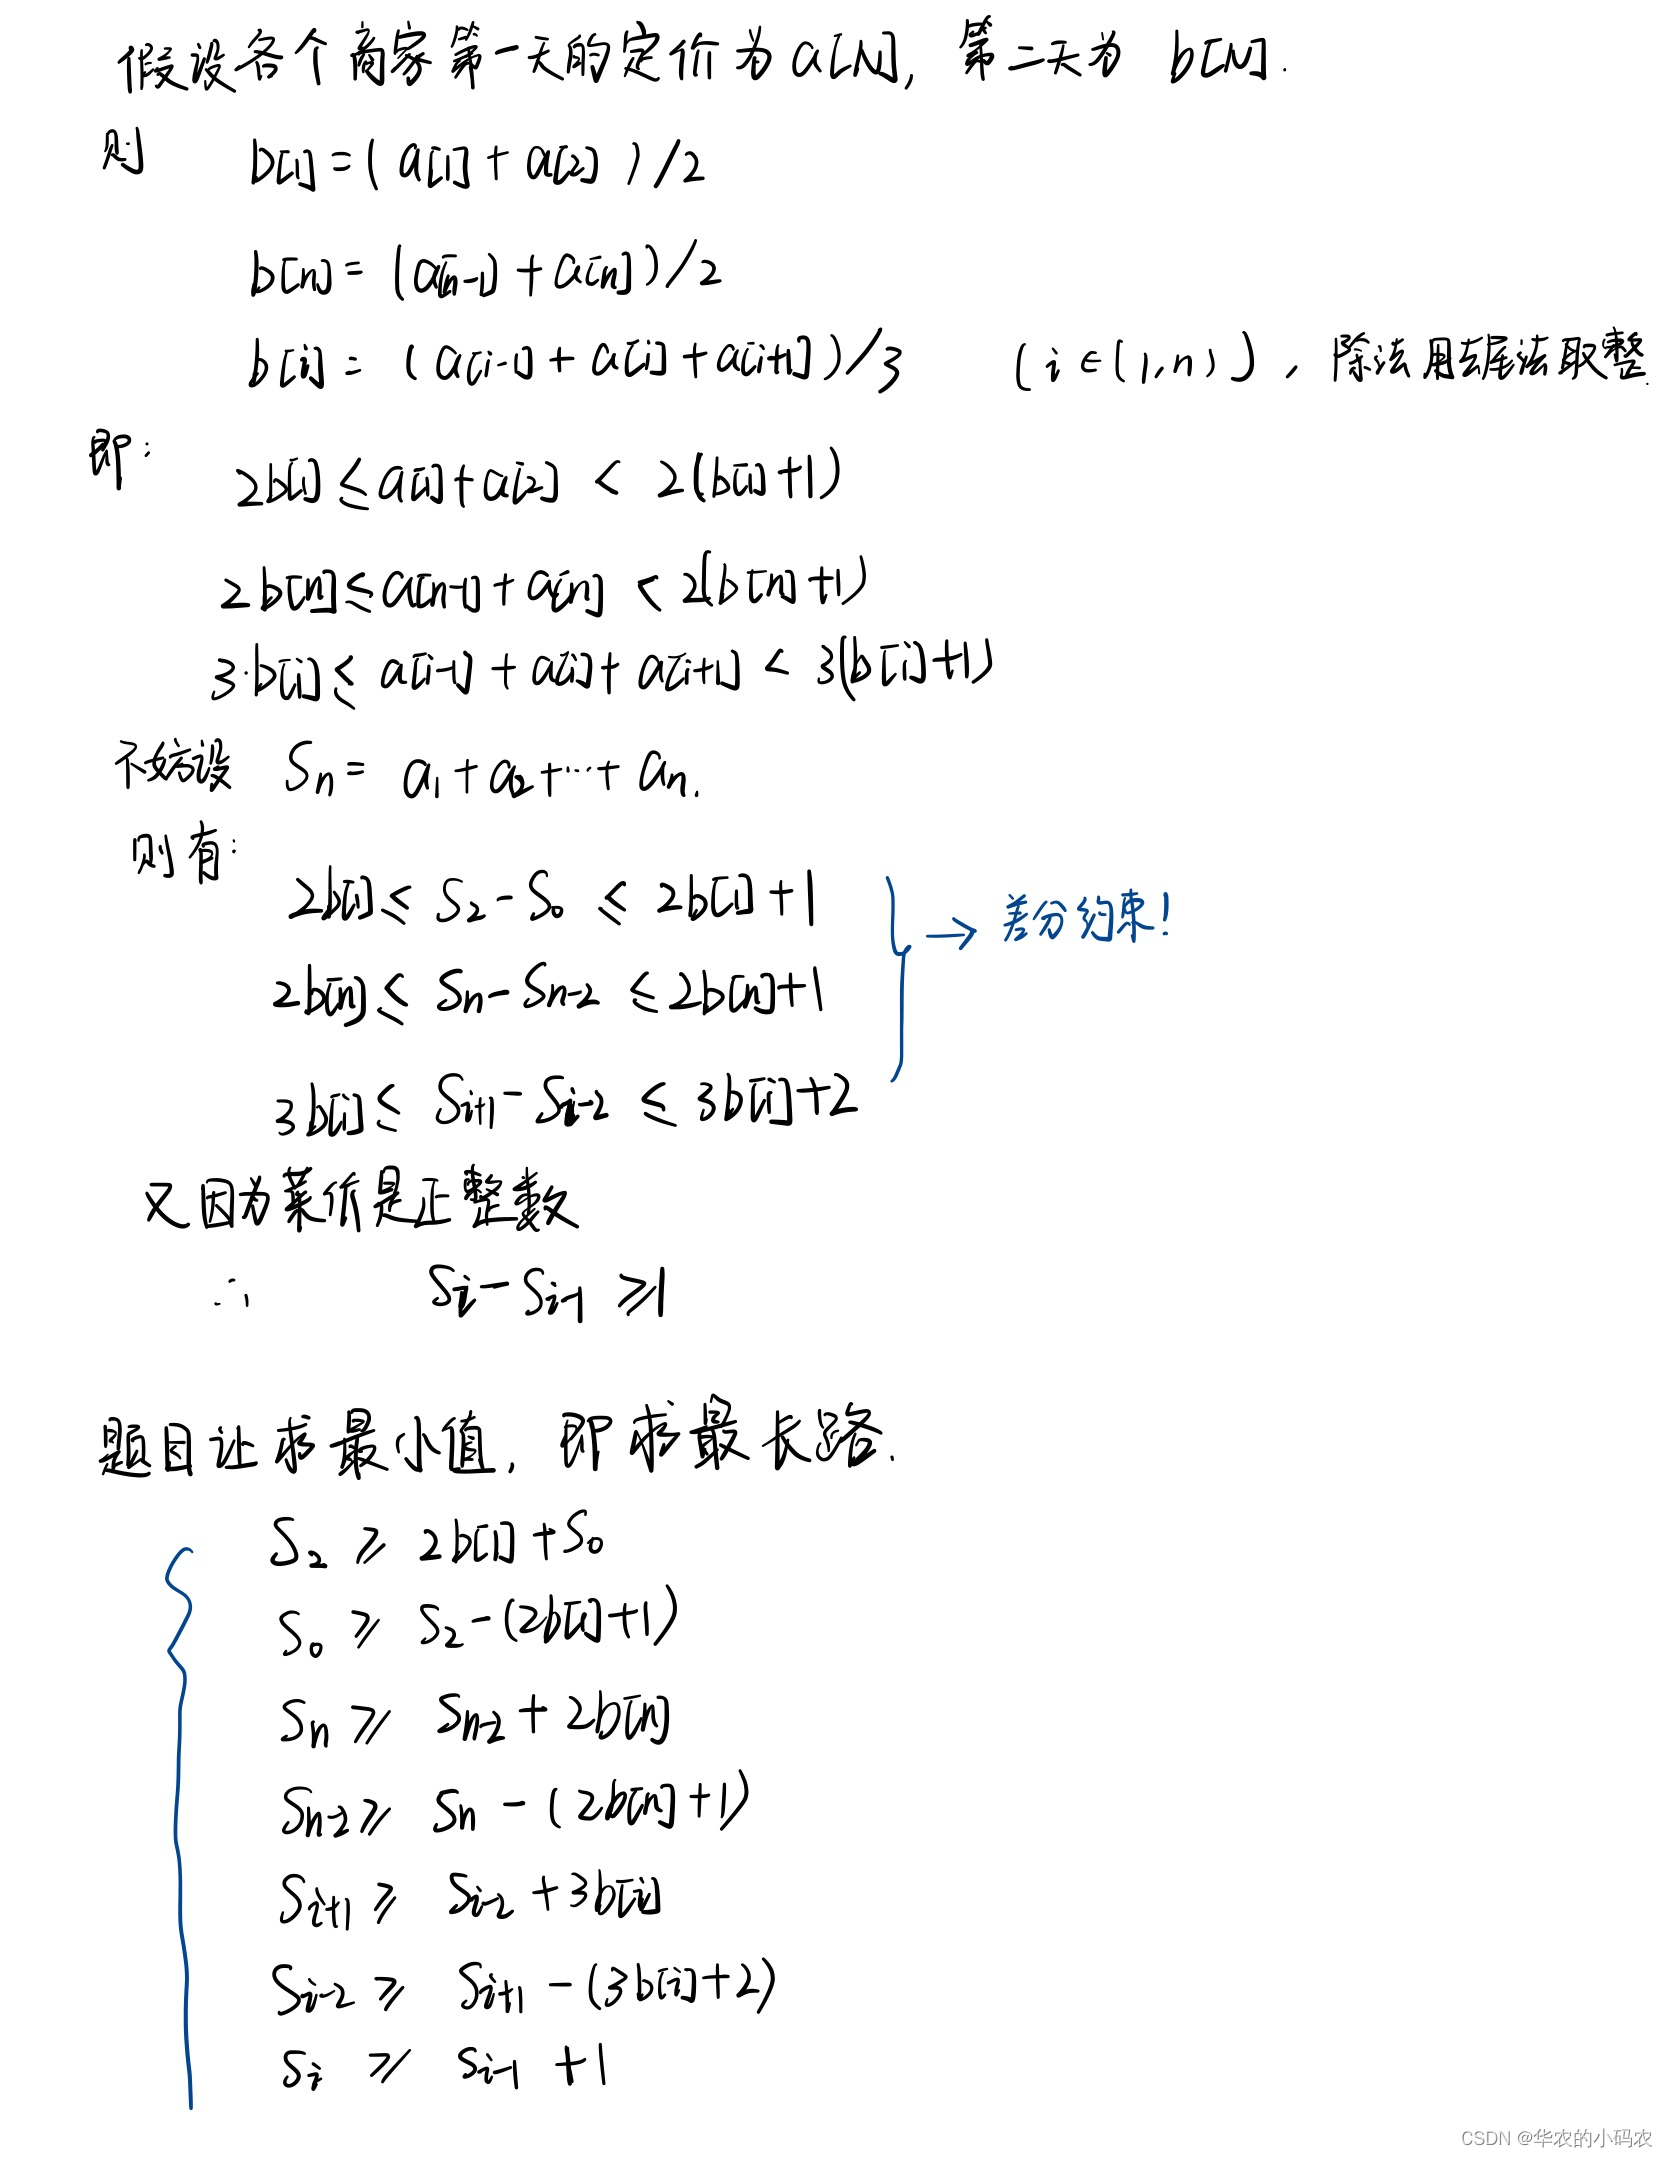 假设各个商家第一天的定价为a[N], 第二天为 b[N].
则 b[1]=(a[1]+a[2])/2
b[n]=(a[n-1]+a[n])/2
b[i]=(a[i-1]+a[i]+a[i+1])/3 (i∈(1,n)), 除法用去尾法取整.
即: 2b[1]≤a[1]+a[2] < 2(b[1]+1)
2b[n]≤a[n-1]+a[n] < 2(b[n]+1)
3·b[i]≤ a[i-1]+a[i]+a[i+1] < 3(b[i]+1)
不妨设 Sn= a1+a2+…+an.
则有:
2b[1]≤ S2-S0 ≤ 2b[1]+1
→ 差分约束!
2b[n]≤ Sn-Sn-2 ≤2b[n]+1
3b[i]≤ Si+1-Si-2 ≤ 3b[i]+2
又因为菜价是正整数
∴ Si-Si-1 ≥1
题目让求最小值, 即求最长路.
S2 ≥ 2b[1]+S0
S0 ≥ S2-(2b[1]+1)
Sn ≥ Sn-2+2b[n]
Sn-2≥ Sn-(2b[n]+1)
Si+1 ≥ Si-2+3b[i]
Si-2 ≥ Si+1-(3b[i]+2)
Si ≥ Si-1 +1
CSDN @华农的小码农